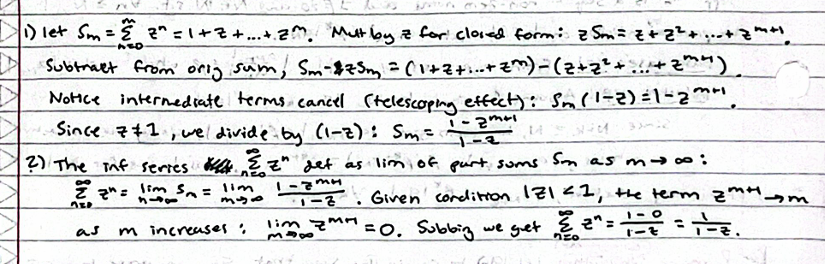 1) let Sm = ∑_{n=0}^{m} z^n = 1 + z + ... + z^m. Mult by z for closed form: z Sm = z + z^2 + ... + z^{m+1}.
Subtract from orig sum, Sm - zSm = (1+z+...+z^m) - (z+z^2+...+z^{m+1}).
Notice intermediate terms cancel (telescoping effect): Sm (1-z) = 1 - z^{m+1}.
Since z ≠ 1, we divide by (1-z): Sm = \frac{1-z^{m+1}}{1-z}
2) The inf series ∑_{n=0}^{∞} z^n def as lim of part sums Sm as m → ∞:
∑_{n=0}^{∞} z^n = lim_{n→∞} Sn = lim_{m→∞} \frac{1-z^{m+1}}{1-z}. Given condition |z| < 1, the term z^{m+1} → m
as m increases: lim_{m→∞} z^{m+1} = 0. Subbing we get ∑_{n=0}^{∞} z^n = \frac{1-0}{1-z} = \frac{1}{1-z}.